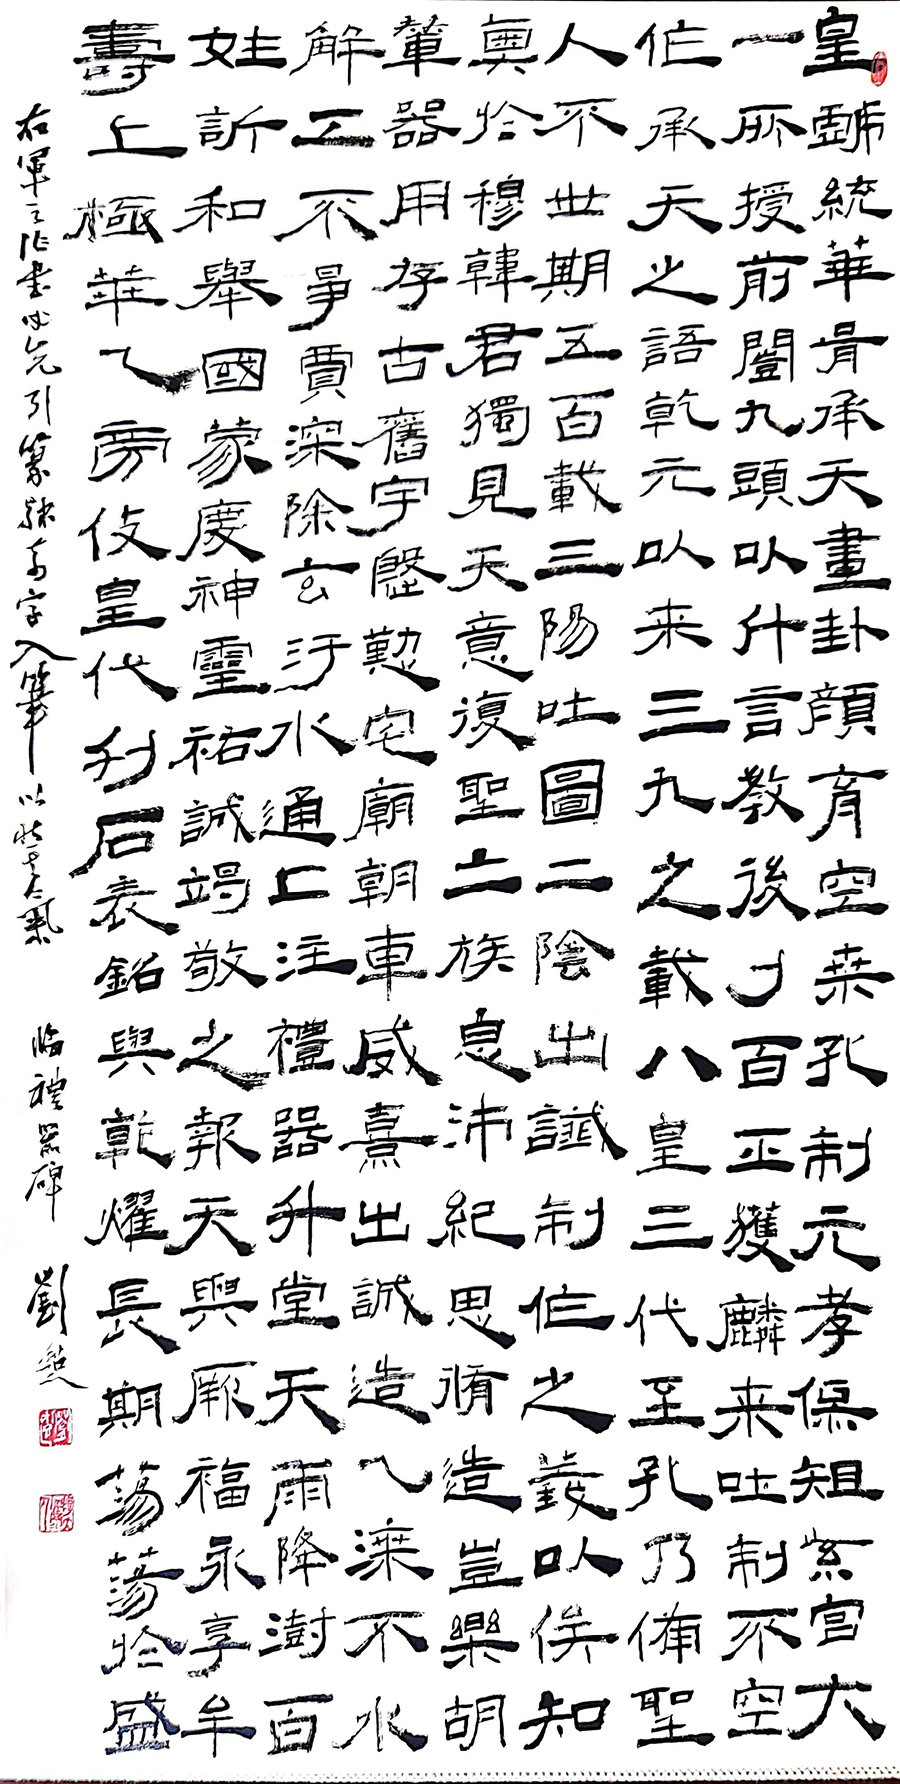 皇戲統華胥承天畫卦顏育空桒孔制元孝俱祖紫宮大
一所授前闓九頭以什言教後寸百王獲麟来吐制不空
作承天之語乾元以来三九之載八皇三代至孔乃備聖
人不世期五百載三陽吐圖二陰出讖制作之義以俟知
奧於穆韓君獨見天意復聖二族息沛紀思脩造豈樂胡
輦器用存古舊宇慇懃宅廟朝車威熹出誠造乀漆不水
解工不爭賈深除玄汙水通上注禮器升堂天雨降澍百
姓訢和舉國蒙慶神靈祐誠竭敬之報天與厥福永享牟
壽上極華乀旁伎皇代刊石表銘與乾燿長期蕩蕩於盛
右軍云作書必先引篆隸奇字入筆以壯其氣 临禮器碑 劉